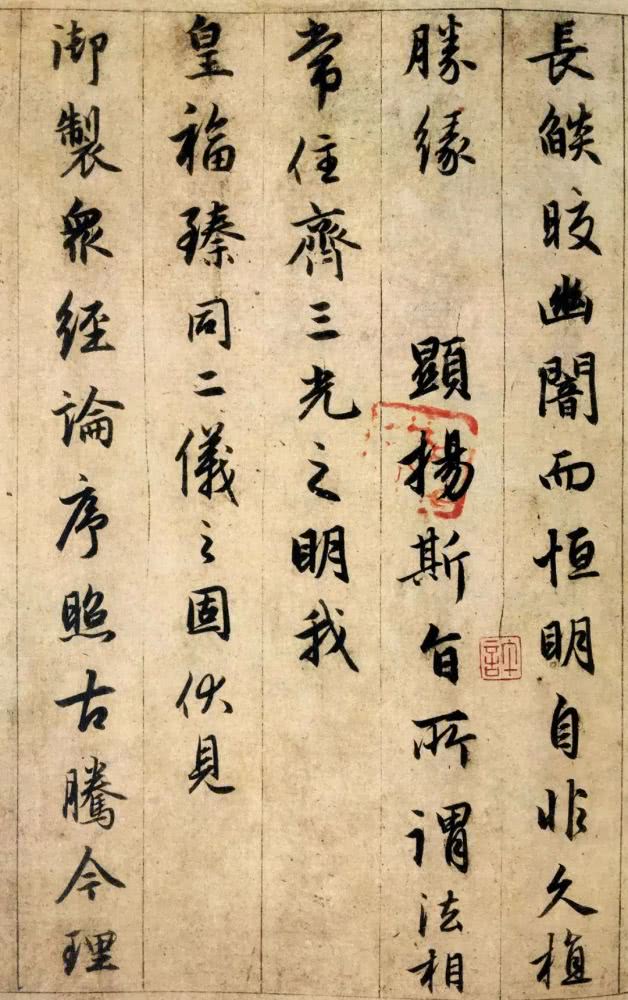 長燄晈幽闇而恒明自非久植
勝緣　顯揚斯旨所謂法相
常住齊三光之明我
皇福臻同二儀之固伏見
御製衆經論序照古騰今理